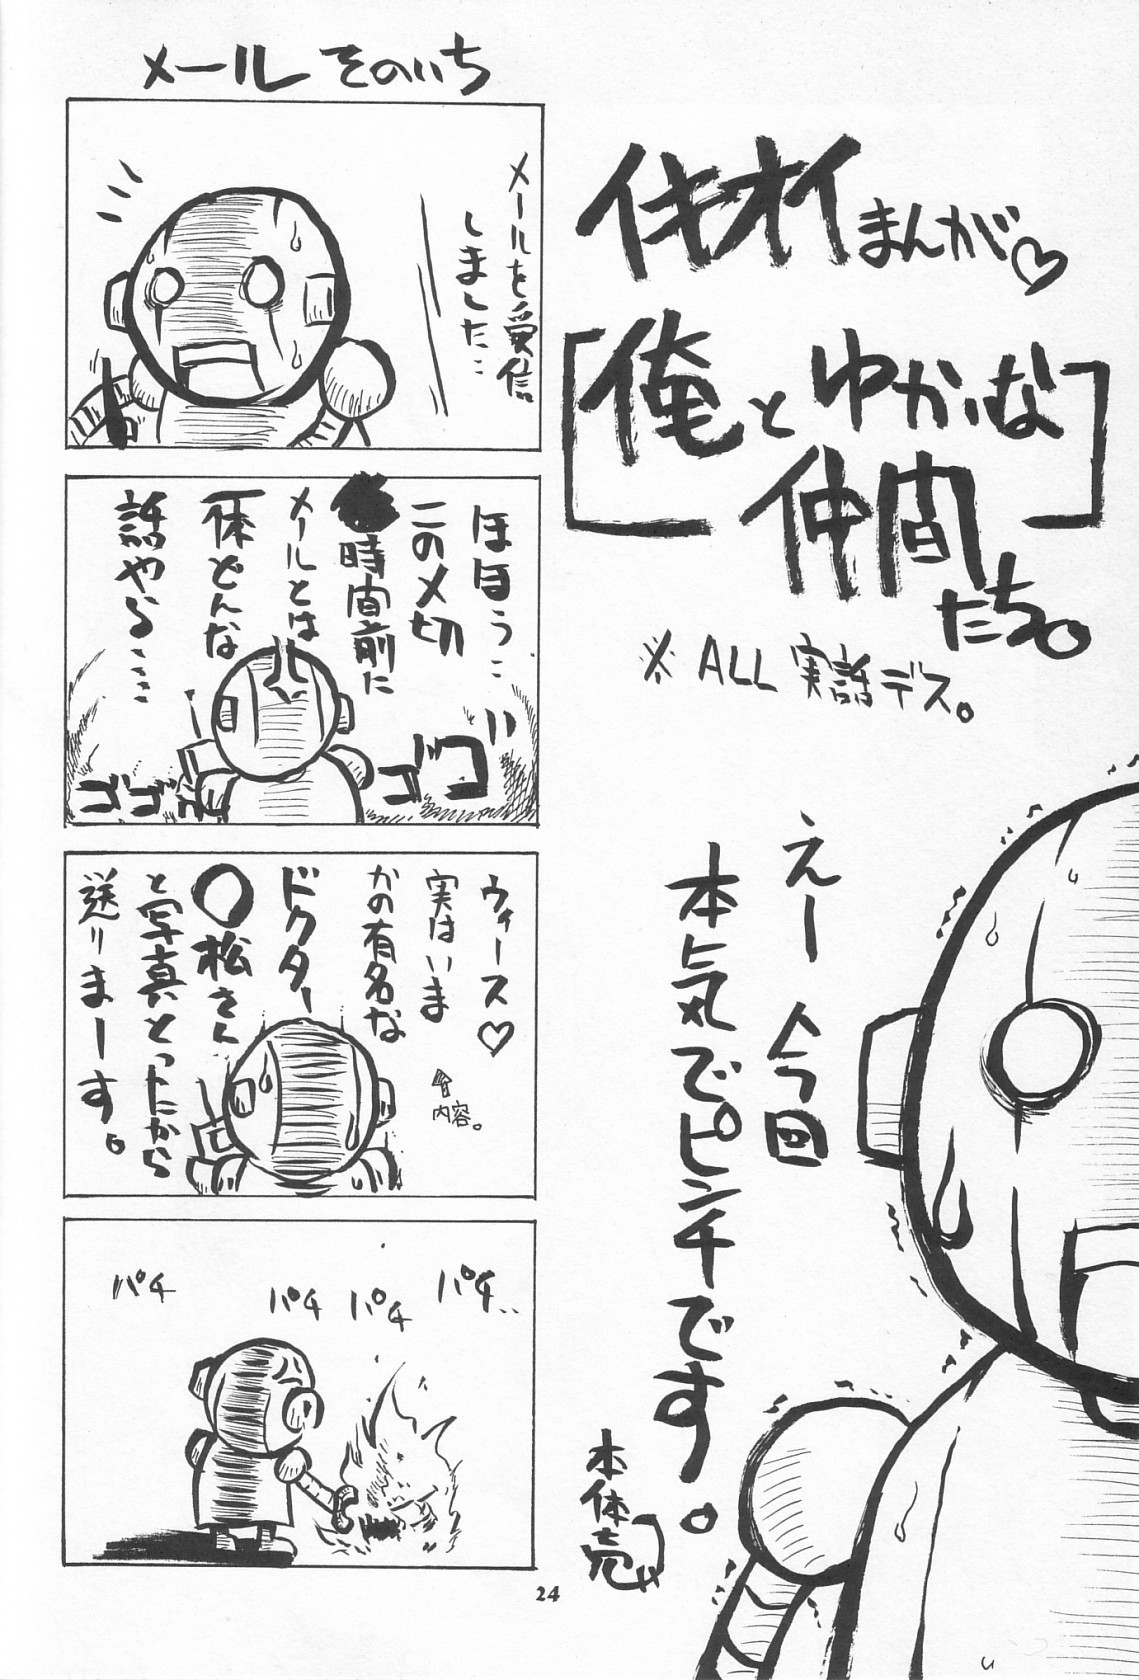 イキオイまんが♡
「俺とゆかいな
仲間
たち。」
※ ALL 実話デス。
えー今回
本気でピンチです。
本体
メール そのいち
メールを受信
しました…
ほほう…
この〆切
時間前に
メールとは
一体どんな
話やら……
ゴゴ
ゴゴゴ
ウィース♡
実はいま
かの有名な
ドクター
〇松さん
と写真とったから
送りまーす。
⇧内容。
パチ..
パチ
パチ
パチ
24